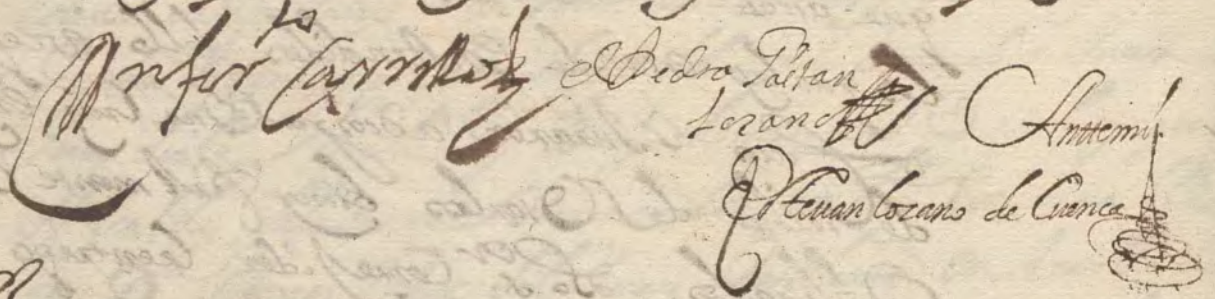 to
Carrillo el Pedro Gaetan
Lozano Anttemi
Esteuan Lozano de Cuenca